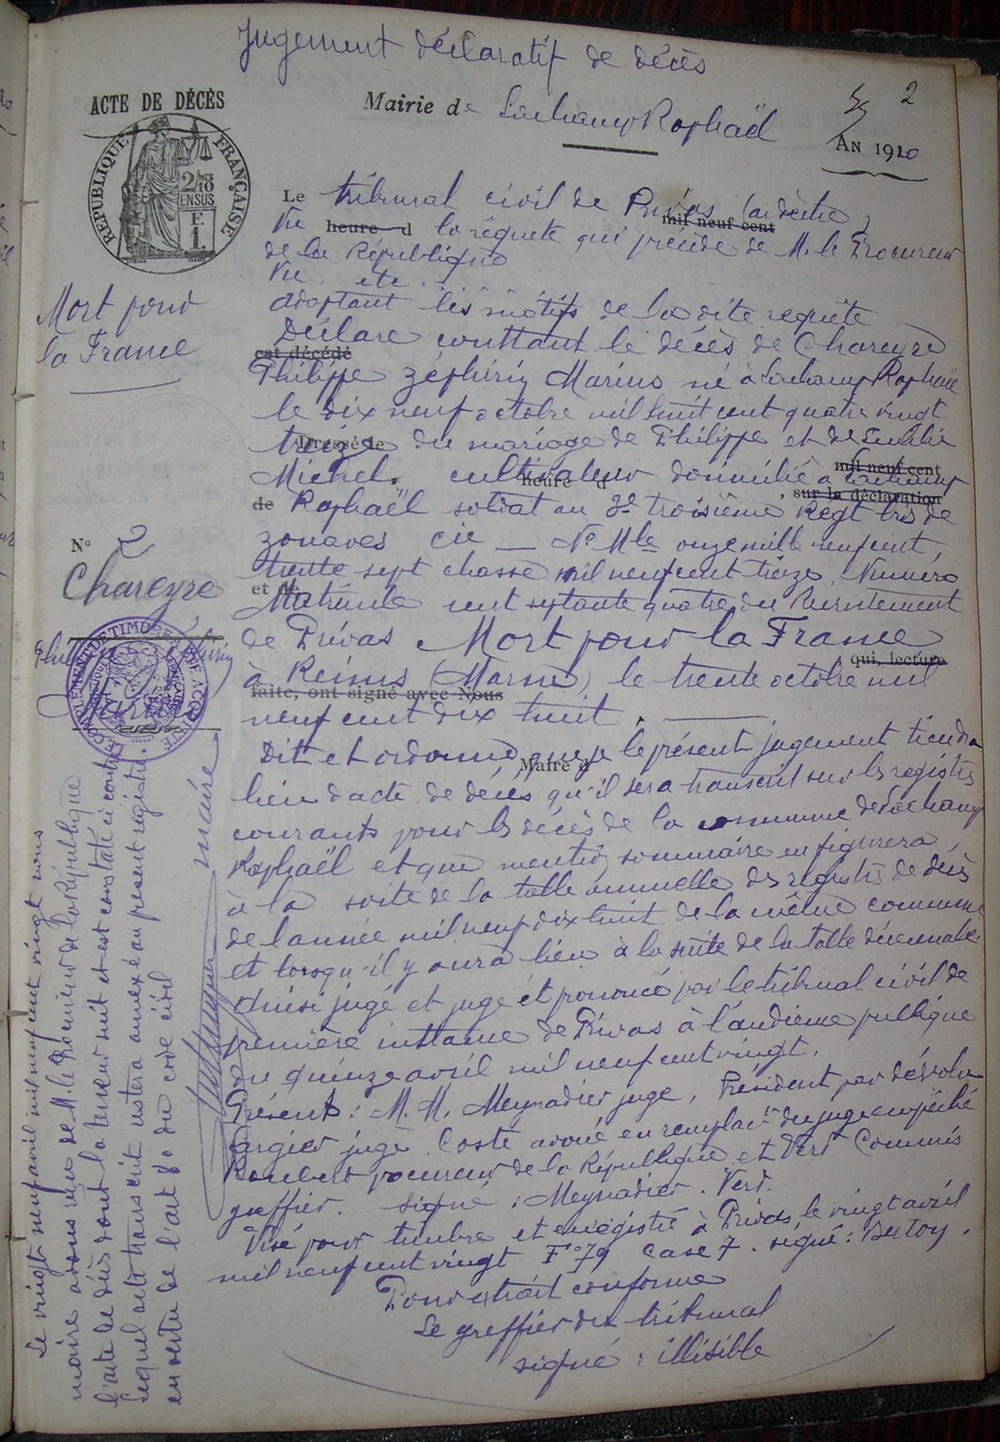 Jugement déclaratif de décès
2
ACTE DE DÉCÈS
Mairie de Lachamp Raphaël
AN 1920
RÉPUBLIQUE FRANÇAISE
2/10 EN SUS
F. 1.
Le tribunal civil de Privas (ardèche)
mil neuf cent
Vu heure d la requête qui précède de M. le Procureur
de la République
Vu etc.
adoptant les motifs de la dite requête
Déclare constant le décès de Chareyre
est décédé
Philippe Zéphirin Marius né à Lachamp Raphaël
le dix neuf octobre mil huit cent quatre vingt
treize du mariage de Philippe et de Eulalie
Dressé le
Michel. cultivateur domicilié à Lachamp
heure d
mil neuf cent
, sur la déclaration
de Raphaël soldat au 3e troisième Regt bis de
zouaves cie — No Mle onze mille neuf cent
trente sept classe mil neuf cent treize. Numéro
et de
Matricule cent septante quatre du Recrutement
de Privas Mort pour la France
qui, lecture
à Reims (Marne) le trente octobre mil
faite, ont signé avec Nous
neuf cent dix huit.
Maire d
Dit et ordonne que le présent jugement tiendra
lieu d'acte de décès qu'il sera transcrit sur les registres
courants pour les décès de la commune de Lachamp
Raphaël et que mention sommaire en figurera
à la suite de la table annuelle des registres de décès
de l'année mil neuf dix huit de la même commune
et lorsqu'il y aura lieu à la suite de la table décennale.
Ainsi jugé et prononcé par le tribunal civil de
première instance de Privas à l'audience publique
du quinze avril mil neuf cent vingt.
Présents: M. M. Meynadier juge, Président par dévolu
juge Coste avoué en remplact du juge empêché
Roubert procureur de la République et Vert Commis
greffier. signé: Meynadier. Vert.
Visé pour timbre et enregistré à Privas, le vingt avril
mil neuf cent vingt Fo 79 case 7. signé: Bertoy.
Pour extrait conforme
Le greffier du tribunal
signé: illisible
Mort pour
la France
No 2
Chareyre
Philippe Zéphirin
Marius
Le vingt neuf avril mil neuf cent vingt nous
maire avons reçu de M. le Procureur de la République
l'acte de décès dont la teneur suit et est constaté ci contre
lequel acte transcrit restera annexé au présent registre.
en vertu de l'art 80 du code civil
maire